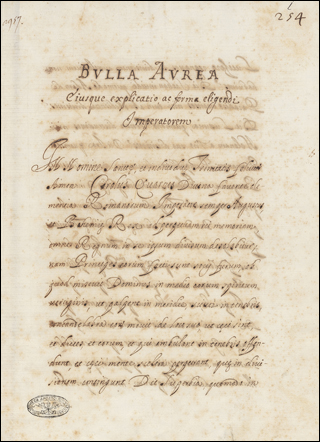 254
BVLLA AVREA
Eiusque explicatio ac forma eligendi
Imperatorem
In Nomine Sanctæ et individuæ Trinitatis feliciter
Amen. Carolus Quartus Divina favente cle-
mentia Romanorum Imperator semper Augustus
et Bohemiæ Rex ad perpetuam memoriam.
omne Regnum in se ipsum divisum desolabitur,
nam Principes eorum facti sunt socij furum, ob
quod miscuit Dominus in medio eorum spiritum
vertiginis ut palpent in meridie sicut in tenebris,
candelabra eorum movit de loco suo ut cæci sint
et duces cæcorum, et qui ambulant in tenebris offen-
dunt et cæci mente scelera perpetrant, quæ in divi-
sione contingunt. Dic superbia quomodo in